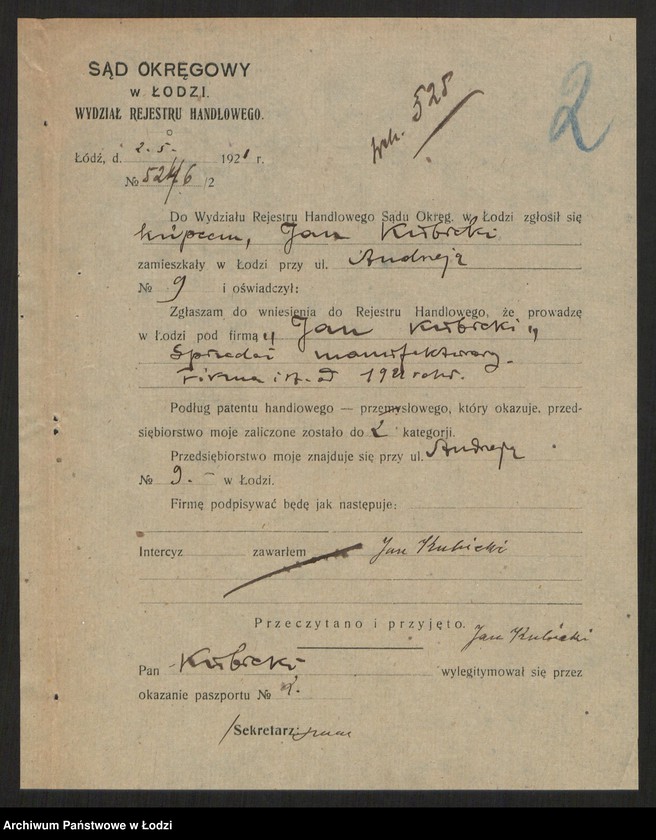 SĄD OKRĘGOWY
w ŁODZI.
WYDZIAŁ REJESTRU HANDLOWEGO.
528
2
Łódź, d. 2. 5. 1921 r.
№ 5246/2
Do Wydziału Rejestru Handlowego Sądu Okręg. w Łodzi zgłosił się
kupcem, Jan Kubicki
zamieszkały w Łodzi przy ul. Andrzeja
№ 9 i oświadczył:
Zgłaszam do wniesienia do Rejestru Handlowego, że prowadzę
w Łodzi pod firmą „Jan Kubicki„
Sprzedaż manufaktury.
Firma ist. od 1921 roku.
Podług patentu handlowego — przemysłowego, który okazuje, przed-
siębiorstwo moje zaliczone zostało do 2 kategorji.
Przedsiębiorstwo moje znajduje się przy ul. Andrzeja
№ 9. – w Łodzi.
Firmę podpisywać będę jak następuje:
Intercyz zawarłem Jan Kubicki
Przeczytano i przyjęto. Jan Kubicki
Pan Kubicki wylegitymował się przez
okazanie paszportu №
/Sekretarz:
Archiwum Państwowe w Łodzi